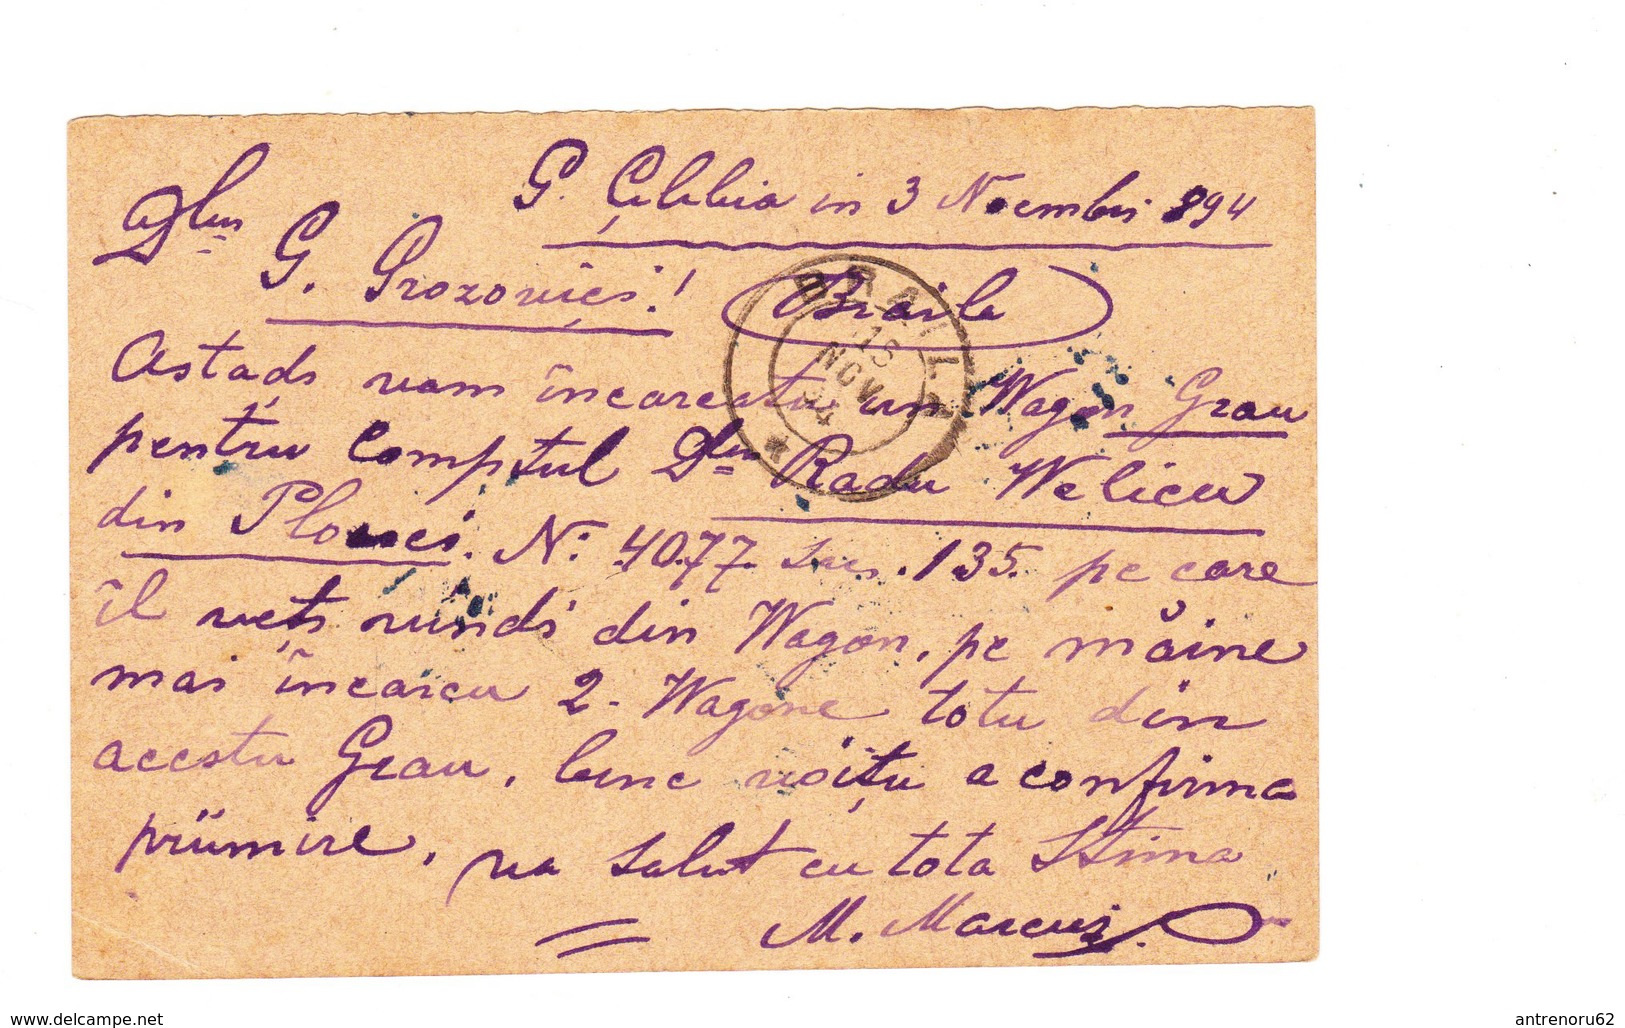 G. Çilibia in 3 Noembri 894
Dlui
G. Grozovici! Braila
BRAILA
15
NOV
94
Astadĭ vam încarcatu un Wagon Grau
pentru Comptul Dlui Radu Welicu
din Ploesci. Nº 4077 sac. 135. pe care
îl veți vinde din Wagon, pe mâine
mai încarcu 2. Wagone totu din
acestu Grau, bine voițu a confirma
priimire, va salut cu tota Stima
M. Marcus
www.delcampe.net
antrenoru62